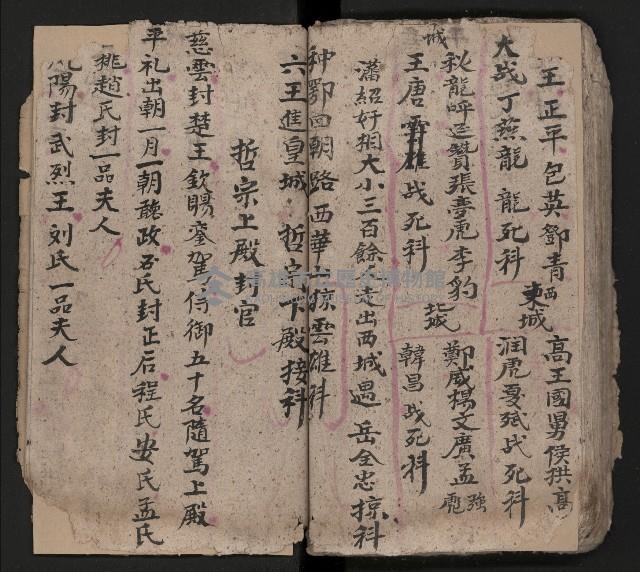 王正平包英鄧青 西 高王國舅侯拱高
大战丁燕龍 龍死科 東城 润虎夏斌战死科
城
狄龍呼延贊張夢虎李豹 鄭威楊文廣孟強 彪
王唐雄战死科 北城 韓昌战死科
瀟紹好相大小三百餘走出西城遇岳全忠掠科
种鄂回朝路西華掠雲雄科
六王進皇城 哲宗下殿接科
哲宗上殿封官
慈雲封楚王欽賜鑾駕侍御五十名隨駕上殿
平礼出朝一月一朝聽政石氏封正后程氏安氏孟氏
桃趙氏封一品夫人
陽封武烈王刘氏一品夫人
高雄市立歷史博物館